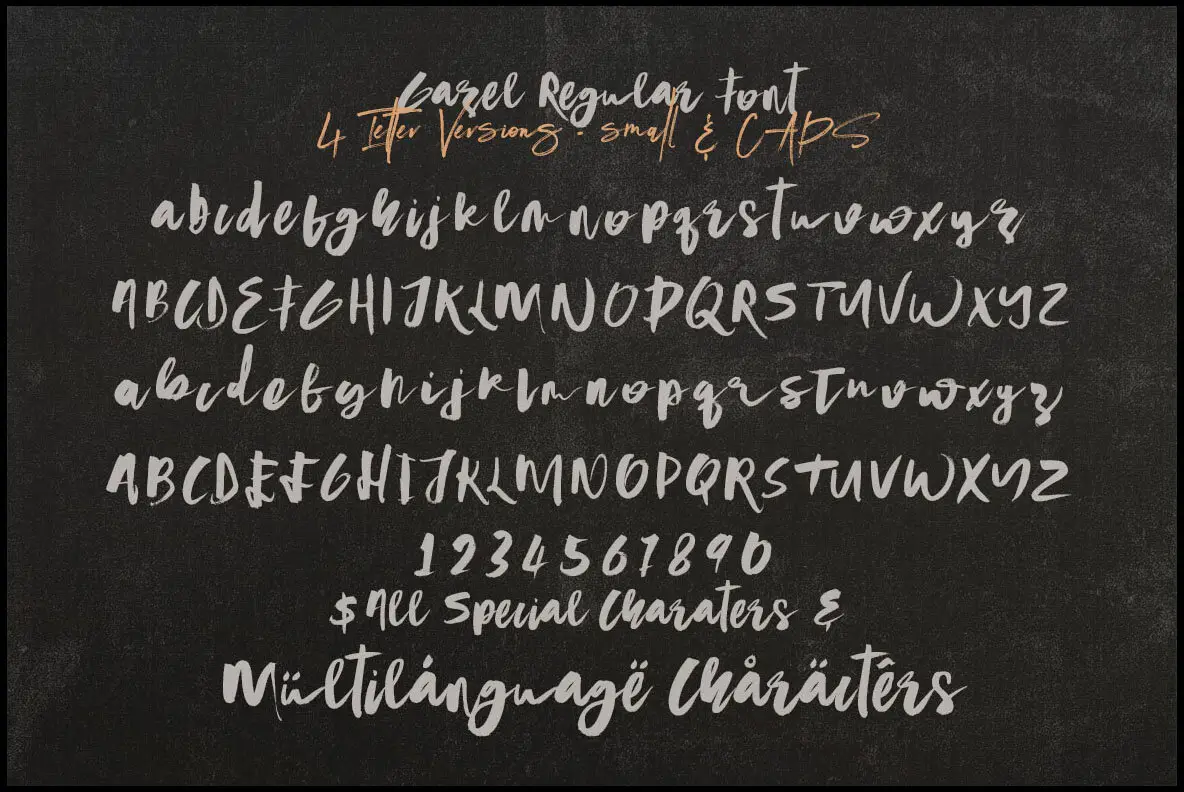 Garel Regular Font
4 Letter Versions - small & CAPS
abcdefghijklmnopqrstuvwxyz
ABCDEFGHIJKLMNOPQRSTUVWXYZ
abcdefghijklmnopqrstuvwxyz
ABCDEFGHIJKLMNOPQRSTUVWXYZ
1234567890
$ All Special Charaters &
Mültilánguagë Chåräctêrs